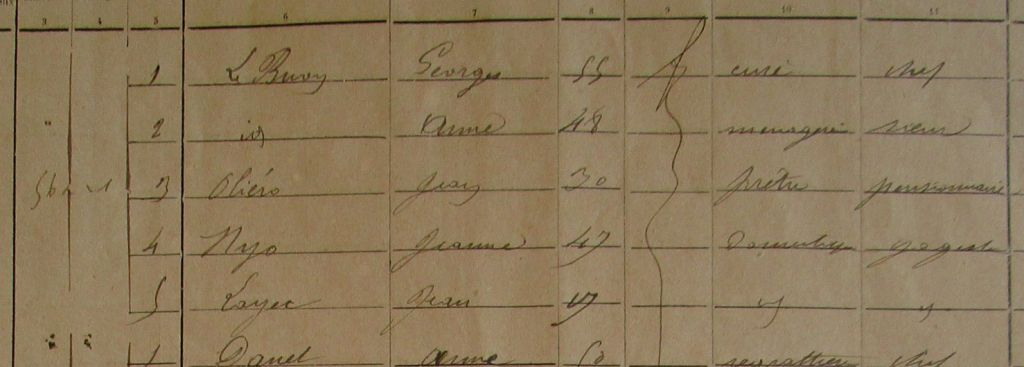 3 4 5 6 7 8 9 10 11
1 Le Buon Georges 55 curé chef
" 2 id Anne 48 ménagère sœur
56 3 Oliéro Jean 30 prêtre pensionnaire
4 Nyo Jeanne 47 domestique
5 Layec Jean id id
1 Danet Anne 50 regrattière chef